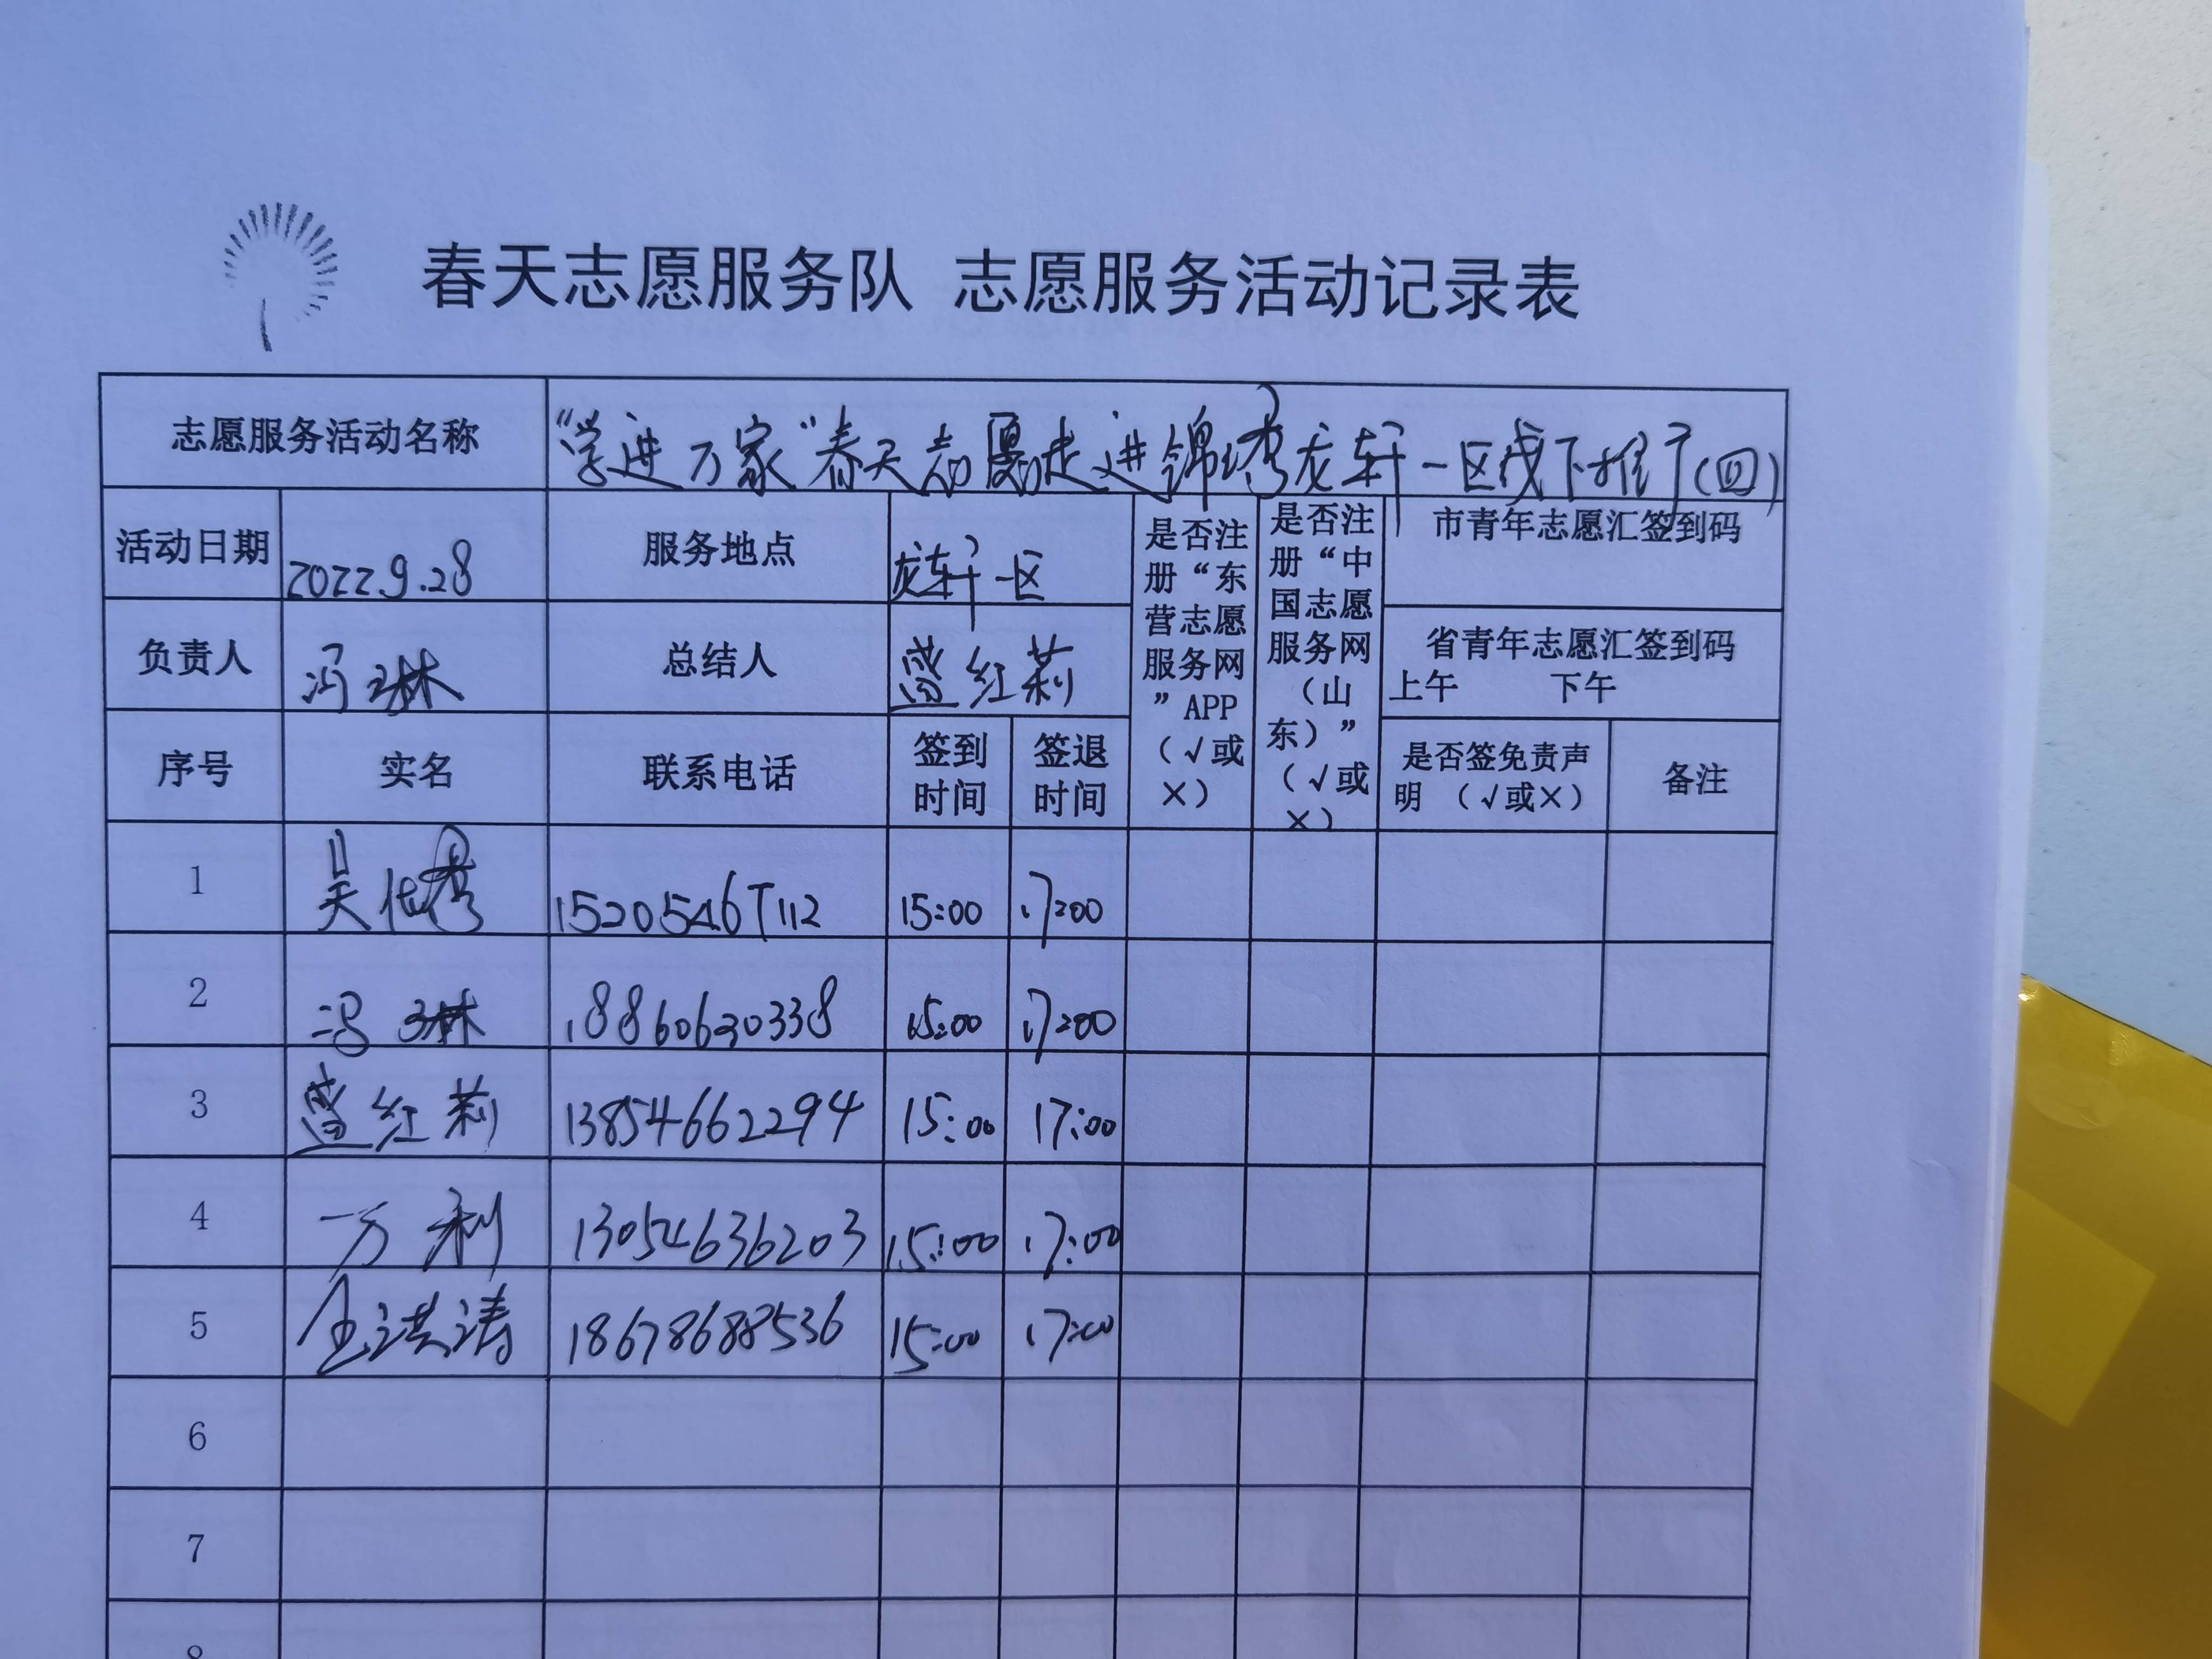 春天志愿服务队 志愿服务活动记录表
志愿服务活动名称 “学进万家”春天志愿走进锦绣龙轩一区线下推广(四)
活动日期 2022.9.28 服务地点 龙轩一区
是否注册“东营志愿服务网”APP（√或×）
是否注册“中国志愿服务网（山东）”（√或×）
市青年志愿汇签到码
负责人 冯琳 总结人 红莉
省青年志愿汇签到码
上午 下午
序号 实名 联系电话 签到时间 签退时间 是否签免责声明 （√或×） 备注
1 吴 秀 15205467112 15:00 17:00
2 冯琳 18860630338 15:00 17:00
3 红莉 13854662294 15:00 17:00
4 万利 13054636203 15:00 17:00
5 洪涛 18678688536 15:00 17:00
6
7
8